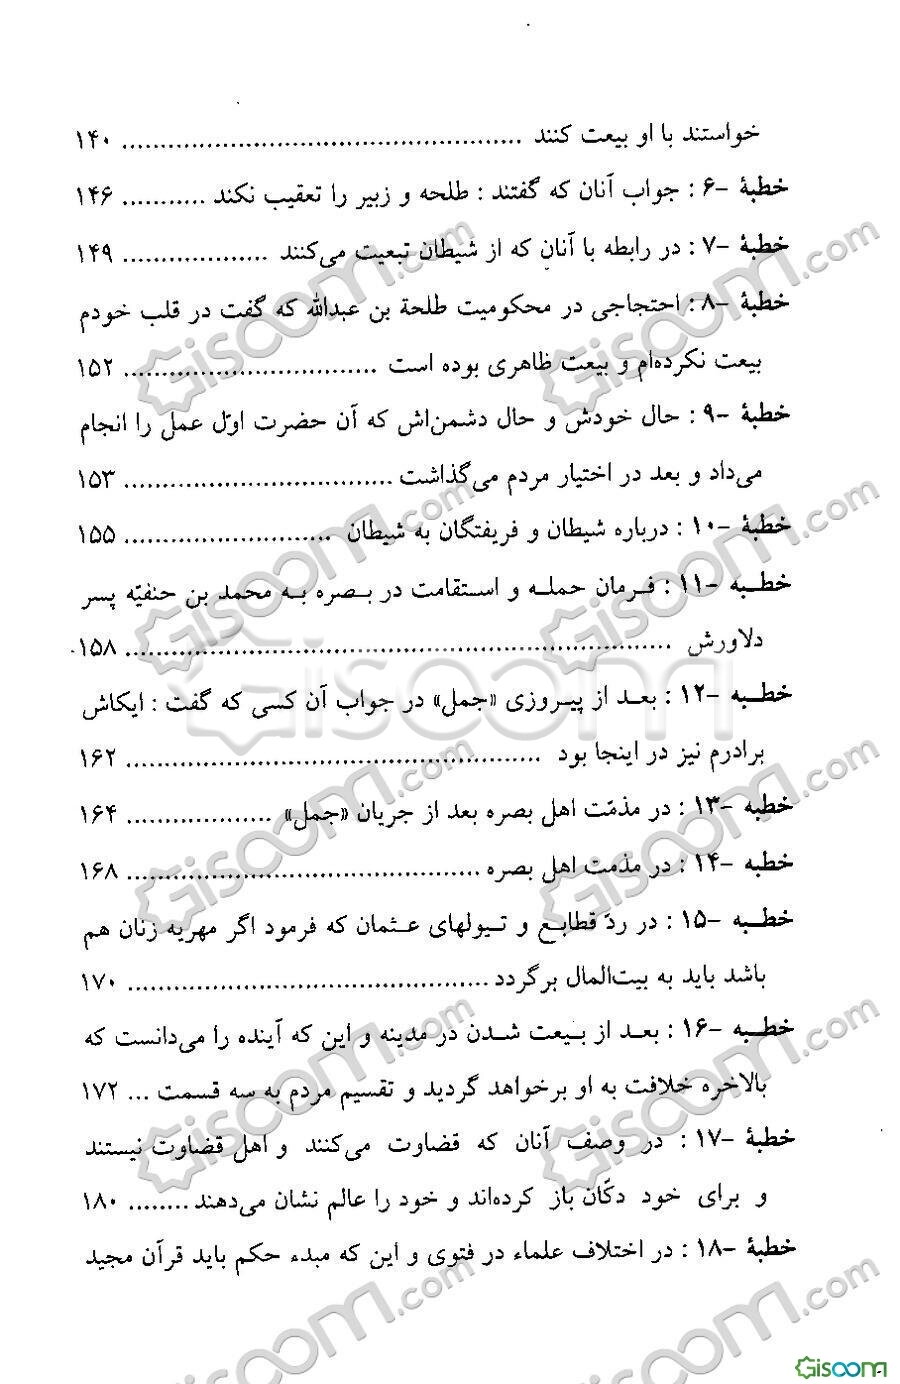 خواستند با او بیعت کنند .................................................... ۱۴۰
خطبهٔ -۶ : جواب آنان که گفتند : طلحه و زبیر را تعقیب نکند ........... ۱۴۶
خطبهٔ -۷ : در رابطه با آنان که از شیطان تبعیت می‌کنند ................... ۱۴۹
خطبهٔ -۸ : احتجاجی در محکومیت طلحة بن عبدالله که گفت در قلب خودم
بیعت نکرده‌ام و بیعت ظاهری بوده است ................................. ۱۵۲
خطبهٔ -۹ : حال خودش و حال دشمن‌اش که آن حضرت اوّل عمل را انجام
می‌داد و بعد در اختیار مردم می‌گذاشت ................................... ۱۵۳
خطبهٔ -۱۰ : درباره شیطان و فریفتگان به شیطان ........................... ۱۵۵
خطبه -۱۱ : فرمان حمله و استقامت در بصره به محمد بن حنفیّه پسر
دلاورش ....................................................................... ۱۵۸
خطبه -۱۲ : بعد از پیروزی «جمل» در جواب آن کسی که گفت : ایکاش
برادرم نیز در اینجا بود ...................................................... ۱۶۲
خطبه -۱۳ : در مذمّت اهل بصره بعد از جریان «جمل» ................... ۱۶۴
خطبه -۱۴ : در مذمت اهل بصره .............................................. ۱۶۸
خطبه -۱۵ : در ردّ قطایع و تیولهای عثمان که فرمود اگر مهریه زنان هم
باشد باید به بیت‌المال برگردد ............................................... ۱۷۰
خطبه -۱۶ : بعد از بیعت شدن در مدینه و این که آینده را می‌دانست که
بالاخره خلافت به او برخواهد گردید و تقسیم مردم به سه قسمت ... ۱۷۲
خطبهٔ -۱۷ : در وصف آنان که قضاوت می‌کنند و اهل قضاوت نیستند
و برای خود دکّان باز کرده‌اند و خود را عالم نشان می‌دهند ........ ۱۸۰
خطبهٔ -۱۸ : در اختلاف علماء در فتوی و این که مبدء حکم باید قرآن مجید
Gisoom.com
Gisoom